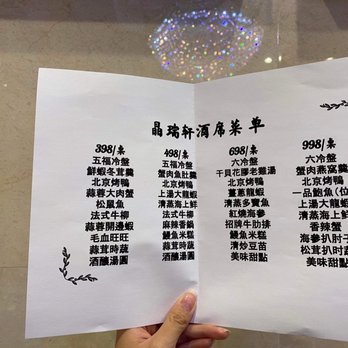 晶瑞轩酒席菜单
398/桌
五福冷盤
鮮蝦冬茸羹
北京烤鴨
蒜蓉大肉蟹
松鼠魚
法式牛柳
蒜蓉開邊蝦
毛血旺旺
蒜茸時蔬
酒釀湯圓
498/桌
五福冷盤
蟹肉魚肚羹
北京烤鴨
上湯大龍蝦
清蒸海上鮮
法式牛柳
麻辣香鍋
鰻魚米糕
蒜茸時蔬
酒釀湯圓
698/桌
六冷盤
干貝花膠老雞湯
北京烤鴨
薑蔥龍蝦
清蒸多寶魚
紅燒海參
招牌牛肋排
鰻魚米糕
清炒豆苗
美味甜點
998/桌
六冷盤
蟹肉燕窩羹
北京烤鴨
一品鮑魚(位
上湯大龍蝦
清蒸海上鮮
香辣蟹
海參扒肘子
松茸扒时蔬
美味甜點